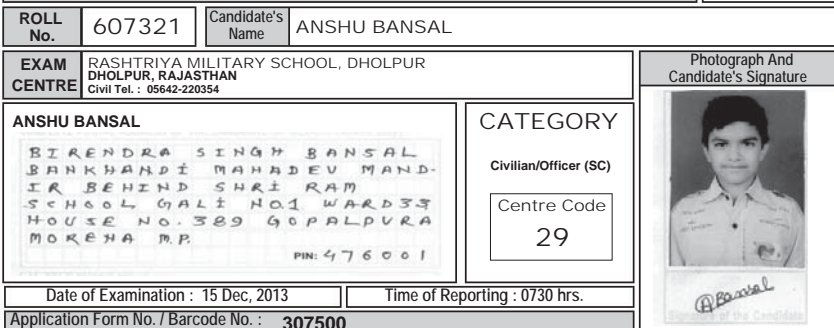 ROLL No. 607321 Candidate's Name ANSHU BANSAL
EXAM CENTRE RASHTRIYA MILITARY SCHOOL, DHOLPUR
DHOLPUR, RAJASTHAN
Civil Tel. : 05642-220354
Photograph And
Candidate's Signature
ANSHU BANSAL
BIRENDRA SINGH BANSAL
BANKHANDI MAHADEV MAND-
IR BEHIND SHRI RAM
SCHOOL GALI NO.1 WARD33
HOUSE NO.389 GOPALPURA
MORENA M.P.
PIN: 476001
CATEGORY
Civilian/Officer (SC)
Centre Code
29
Bansal
Signature of the Candidate
Date of Examination : 15 Dec, 2013 Time of Reporting : 0730 hrs.
Application Form No. / Barcode No. : 307500